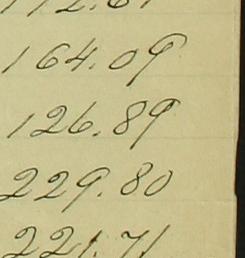 112.61
164.09
126.89
229.80
221.71